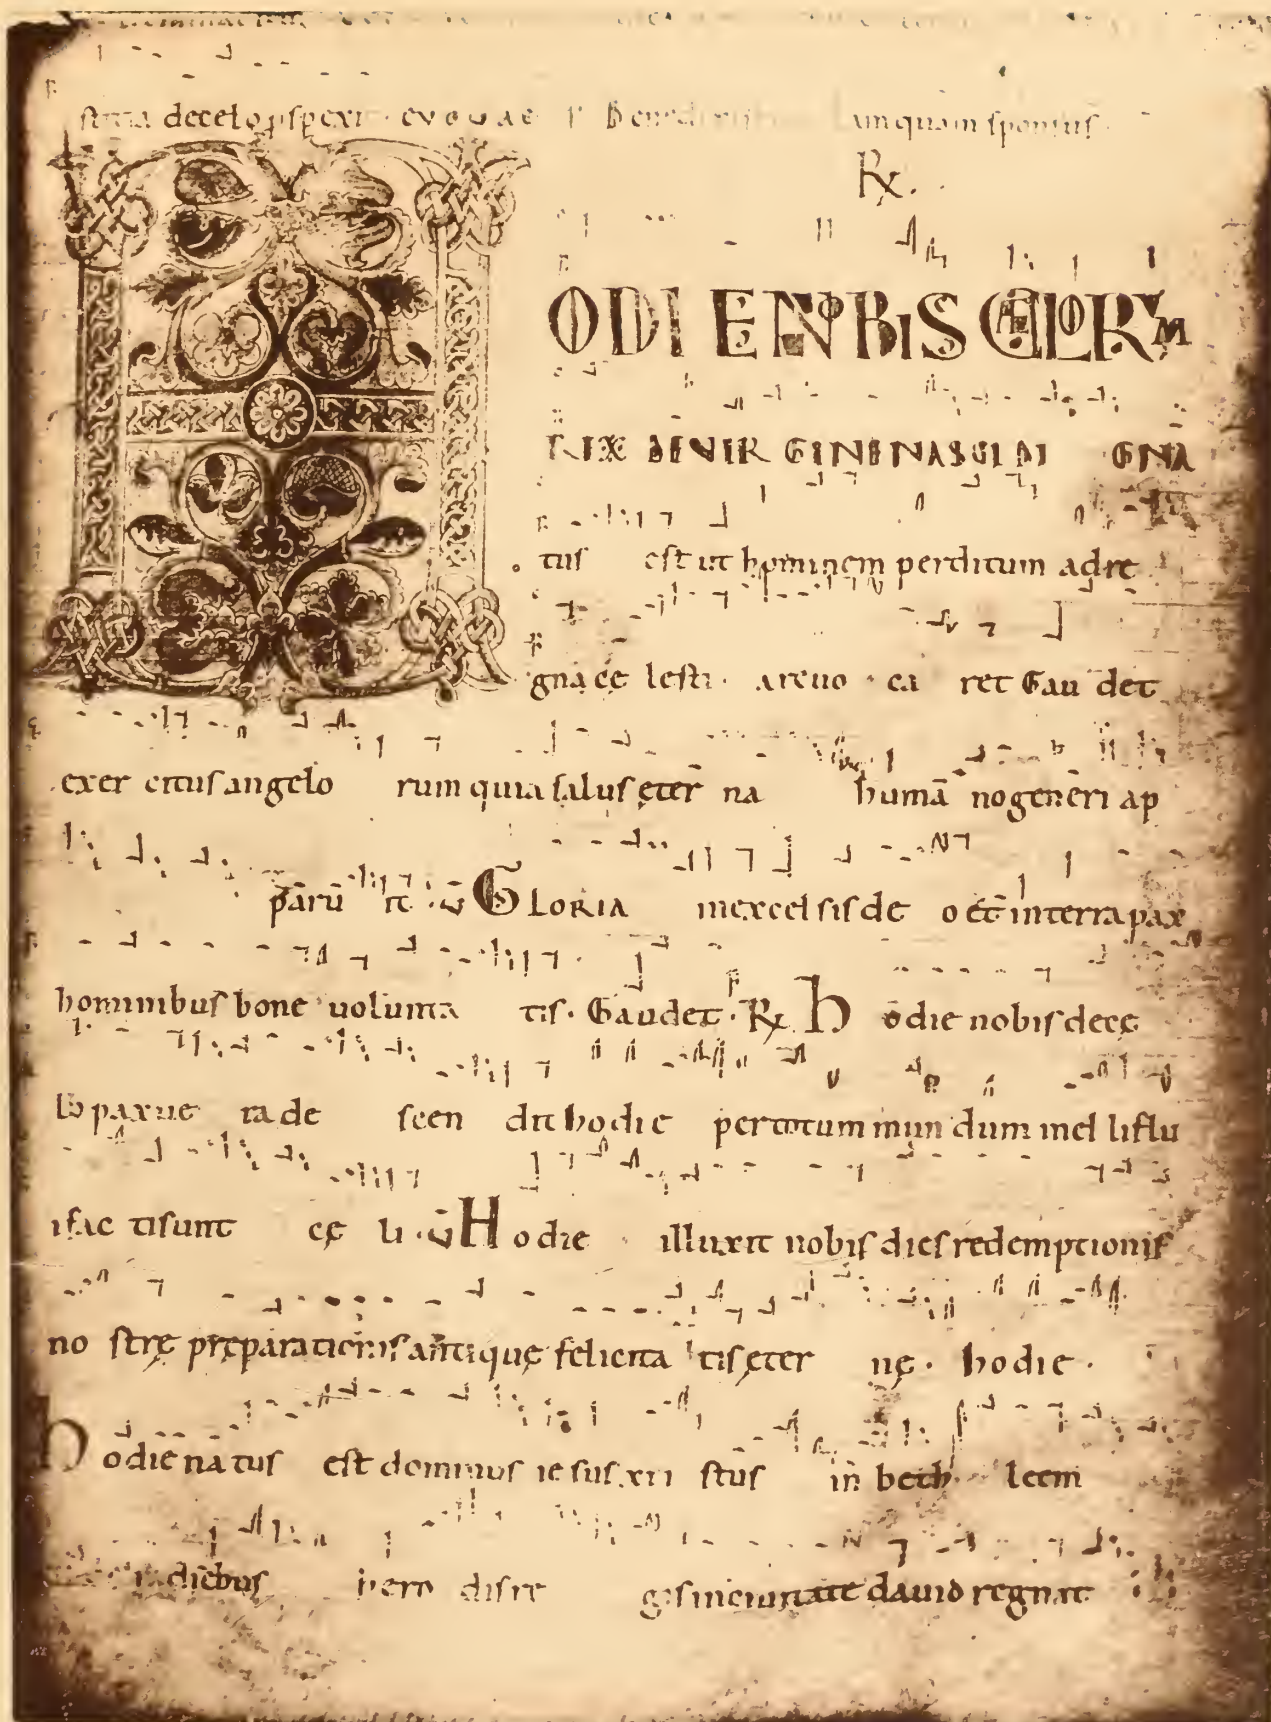 stitia de celo ꝓspexit · EVOVAE · Benedixisti Tamquam sponsus ·
℞.
HODIE NOBIS CAELORVM
REX DE VIRGINE NASCI DI GNA
tus est ut hominem perditum ad re
gna cę lesti · a reuo · ca ret Gau det
exer citus angelo rum quia salus ęter na humā no generi ap
pāru it · ℣ GLORIA in excelsis de o et in terra pax
hominibus bone uolunta tis · Gaudet · ℞ Hodie nobis de cę
lo pax ue ra de scen dit hodie per totum mun dum melliflu
i fac ti sunt cę li · ℣ Hodie illuxit nobis dies redemptionis
no strę pręparationis antiquę felicita tis ęter nę · hodie ·
Hodie natus est dominus iesus xri stus in beth leem
in diebus hero dis re gis in ciuitate dauid regnat